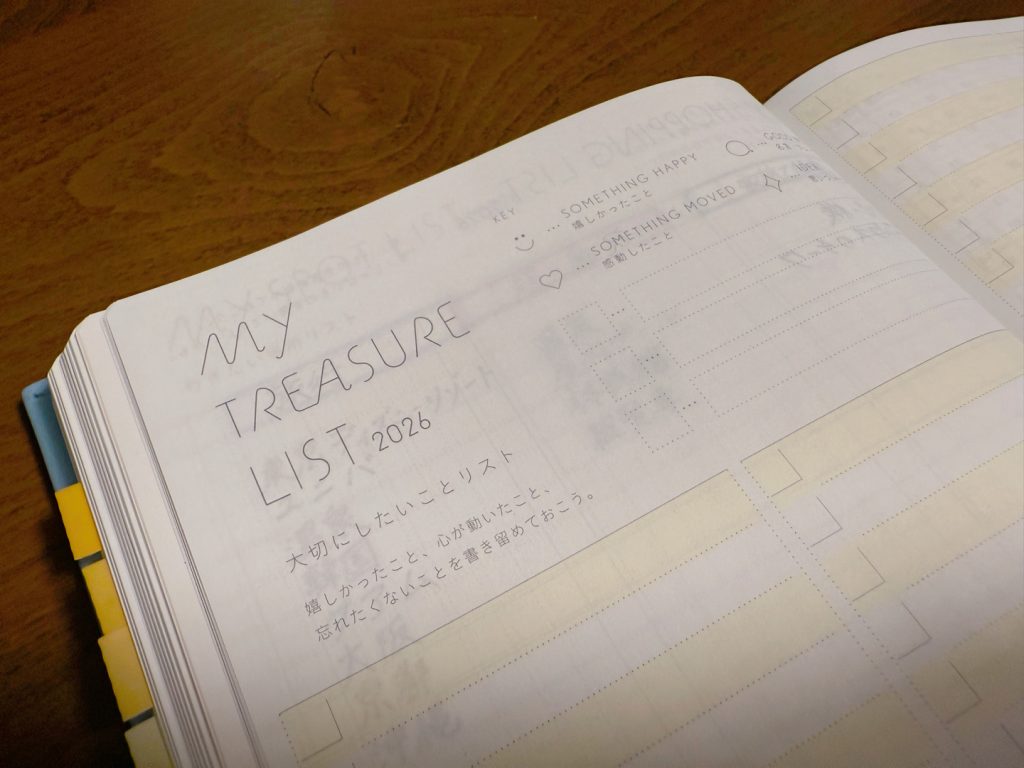 MY
TREASURE
LIST 2026
大切にしたいことリスト
嬉しかったこと、心が動いたこと、
忘れたくないことを書き留めておこう。
KEY
... SOMETHING HAPPY
嬉しかったこと
... SOMETHING MOVED
感動したこと